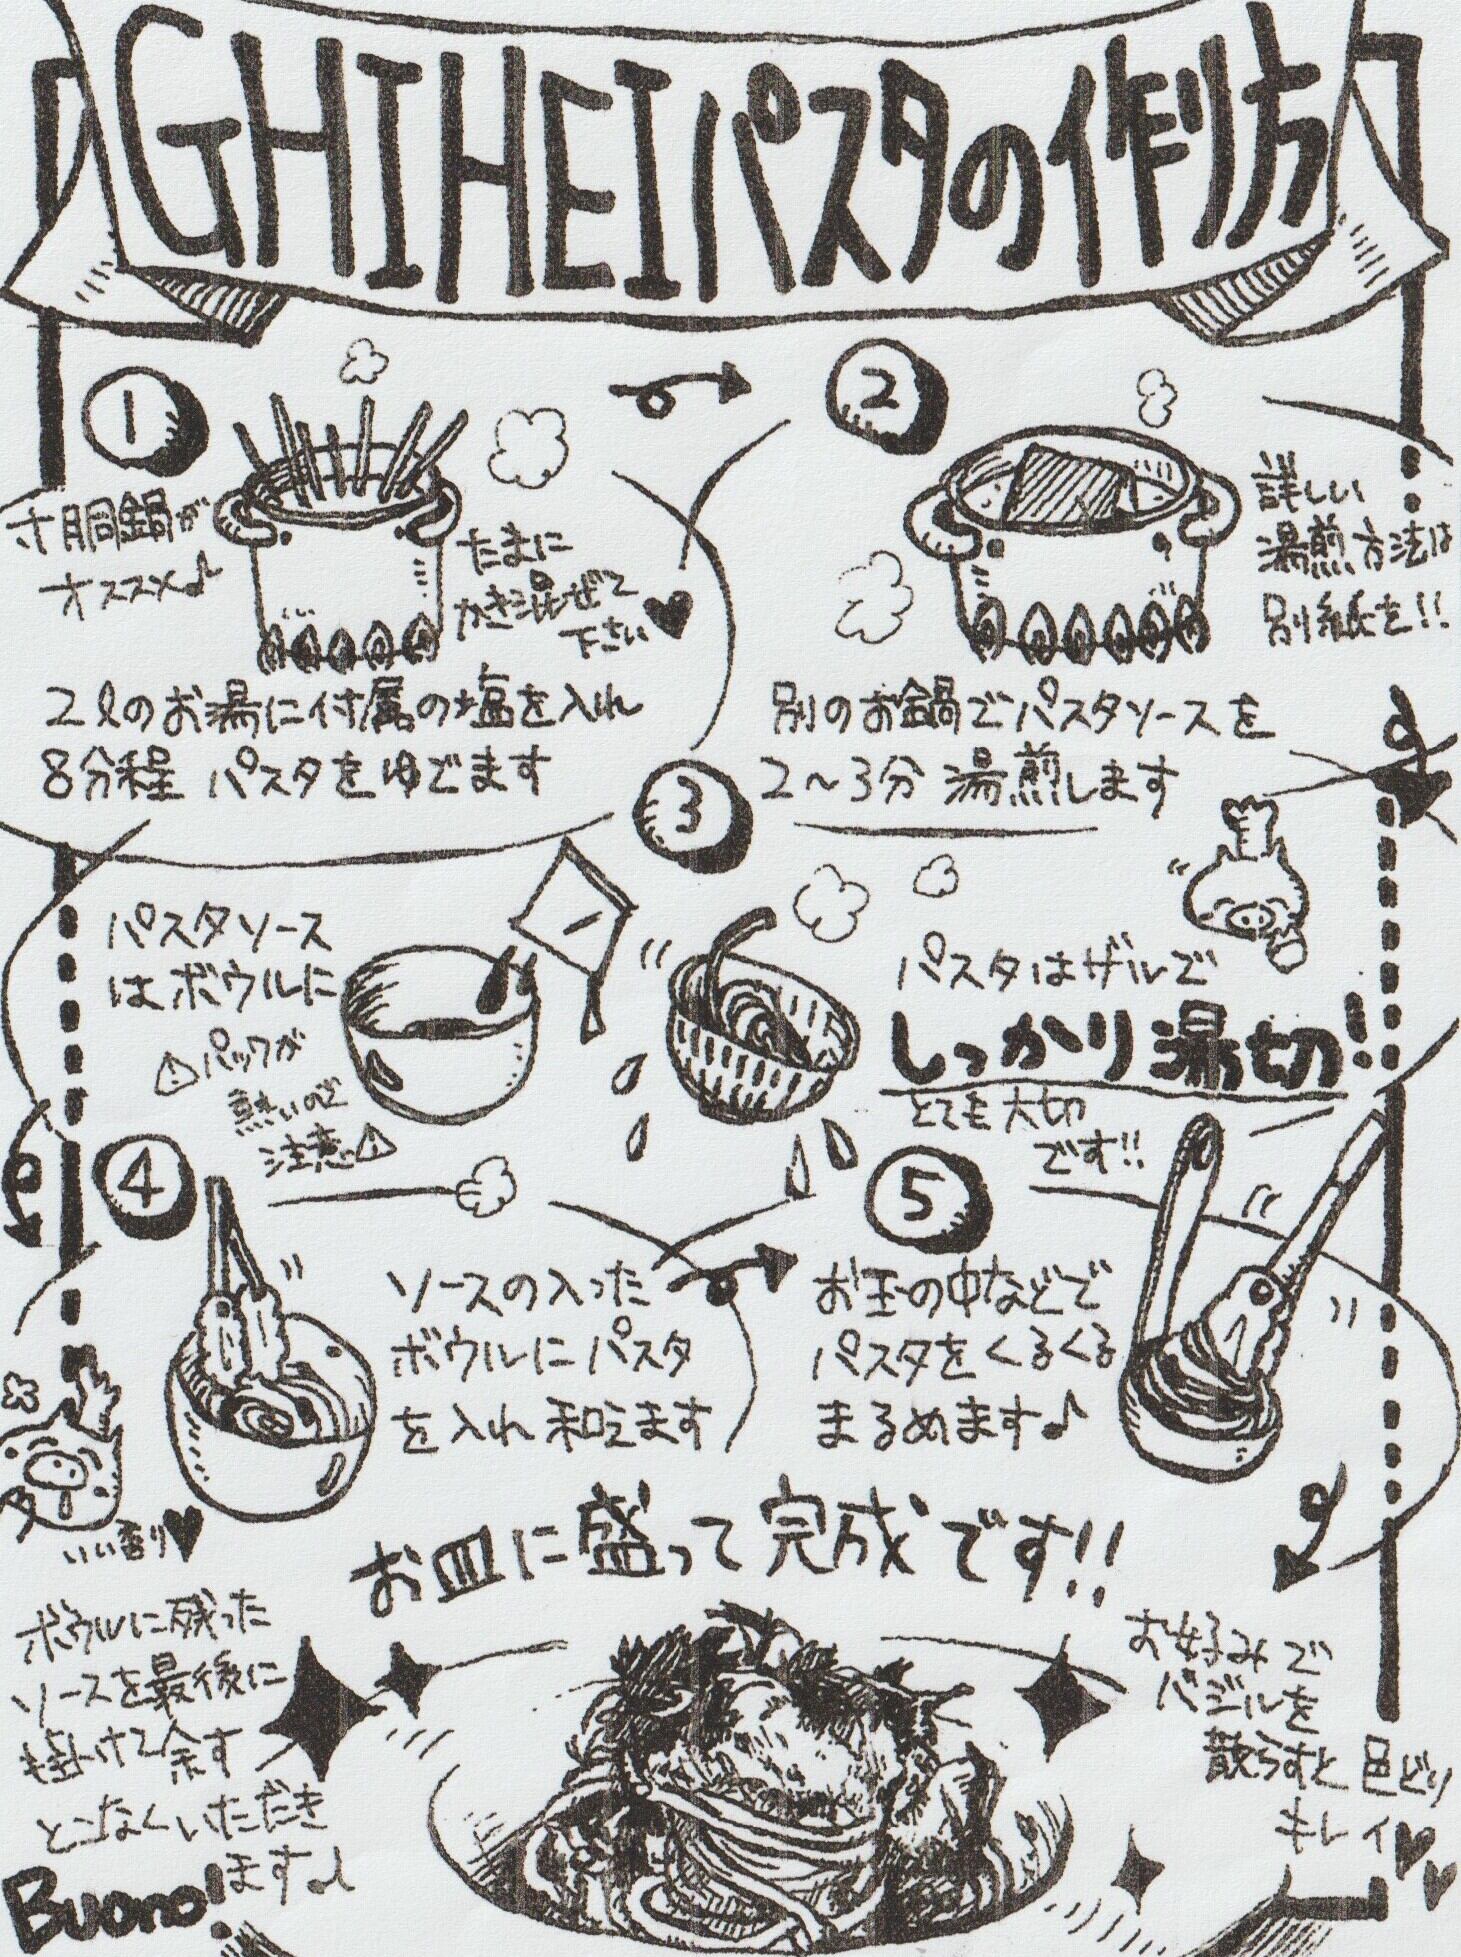 GHIHEIパスタの作り方
1
寸胴鍋が
オススメ♪
たまに
かき混ぜて
下さい♥
2ℓのお湯に付属の塩を入れ
8分程 パスタをゆでます
2
詳しい
湯煎方法は
別紙を!!
別のお鍋でパスタソースを
2〜3分 湯煎します
3
パスタソース
はボウルに
⚠パックが
熱いので
注意⚠
パスタはザルで
しっかり湯切!
とても大切
です!!
4
ソースの入った
ボウルにパスタ
を入れ和えます
いい香り♥
5
お玉の中などで
パスタをくるくる
まるめます♪
お皿に盛って完成です!!
ボウルに残った
ソースを最後に
掛けて余す
とこなくいただき
ます♪
Buono!
お好みで
バジルを
散らすと色どり
キレイ♥♥